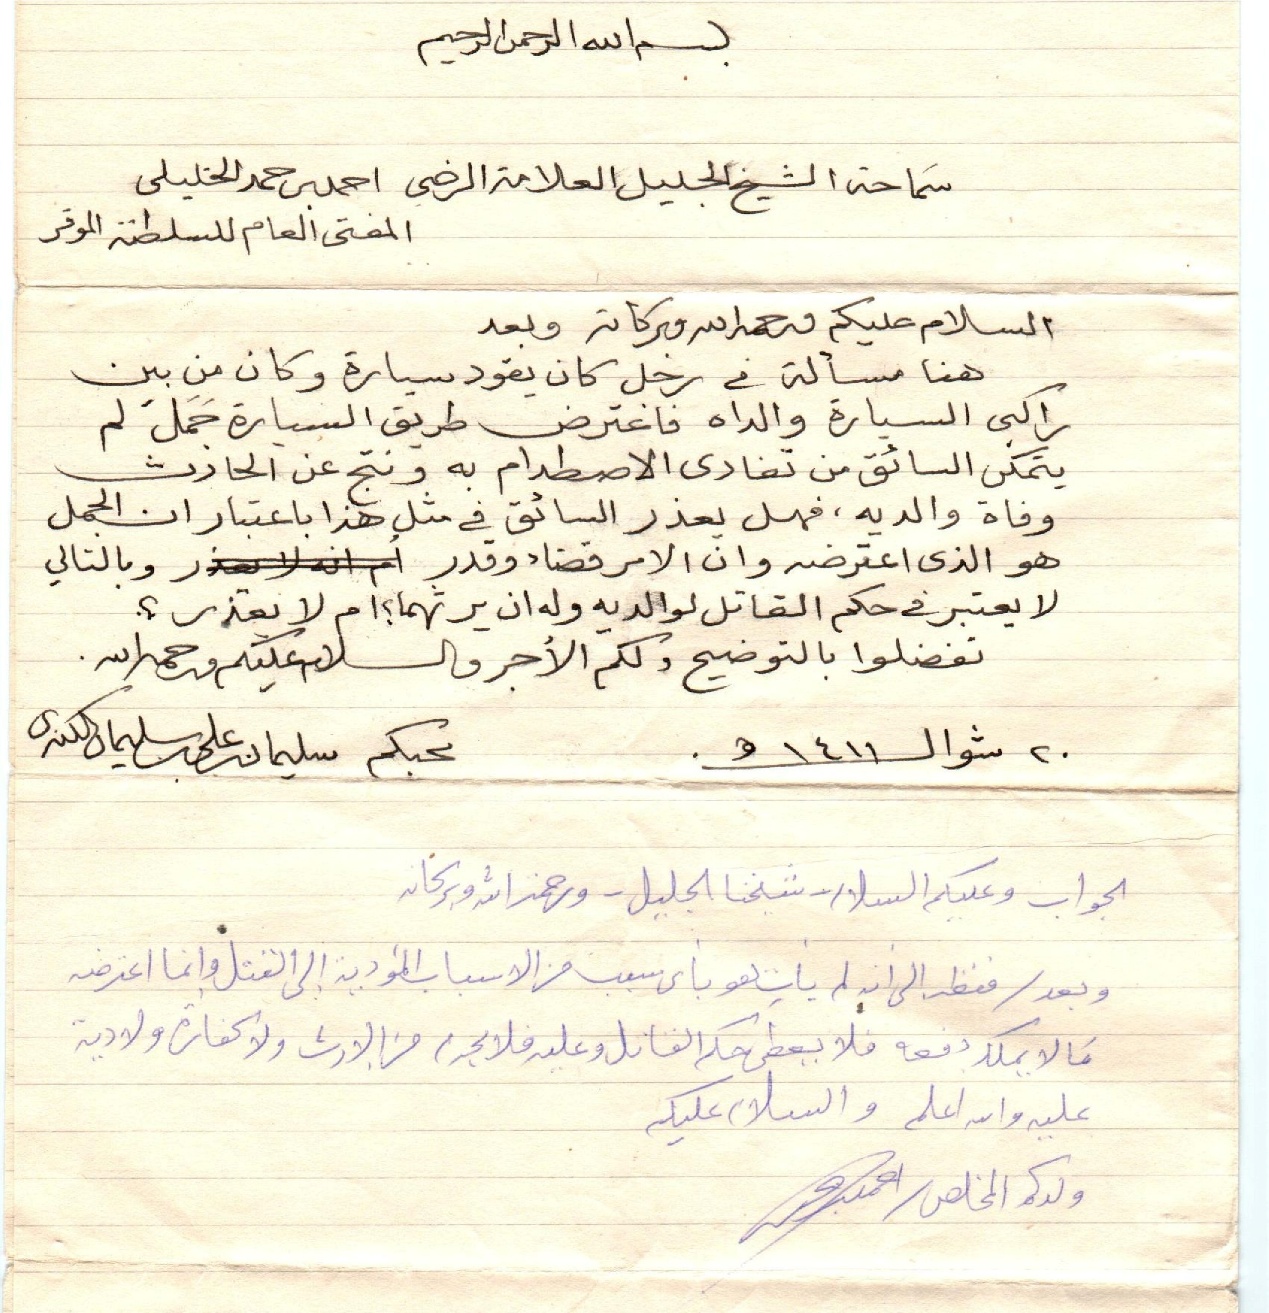 بسم الله الرحمن الرحيم
سماحة الشيخ الجليل العلامة الرضي احمد بن حمد الخليلي
المفتى العام للسلطنة الموقر
السلام عليكم ورحمة الله وبركاته وبعد
هنا مسألة في رجل كان يقود سيارة وكان من بين
راكبى السيارة والداه فاعترض طريق السيارة جَمَل لم
يتمكن السائق من تفادى الاصطدام به ونتج عن الحادث
وفاة والديه، فهل يعذر السائق في مثل هذا باعتبار ان الجمل
هو الذى اعترضه وان الامر قضاء وقدر أم انه لا يعذر وبالتالي
لا يعتبر في حكم القاتل لوالديه وله ان يرثهما؟ ام لا يعذر؟
تفضلوا بالتوضيح ولكم الأجر والسلام عليكم ورحمة الله.
٢٠ شوال ١٤١١ هـ. محبكم سليمان بن علي بن سليمان الكندى
الجواب وعليكم السلام - شيخنا الجليل - ورحمة الله وبركاته
وبعد / فنظرا إلى أنه لم يأت هو بأى سبب من الاسباب المؤدية إلى القتل وإنما اعترضه
ما لا يملك دفعه فلا يعطى حكم القاتل وعليه فلا يحرم من الارث ولا كفارة ولا دية
عليه والله اعلم والسلام عليكم
ولدكم المخلص / احمد بن حمد